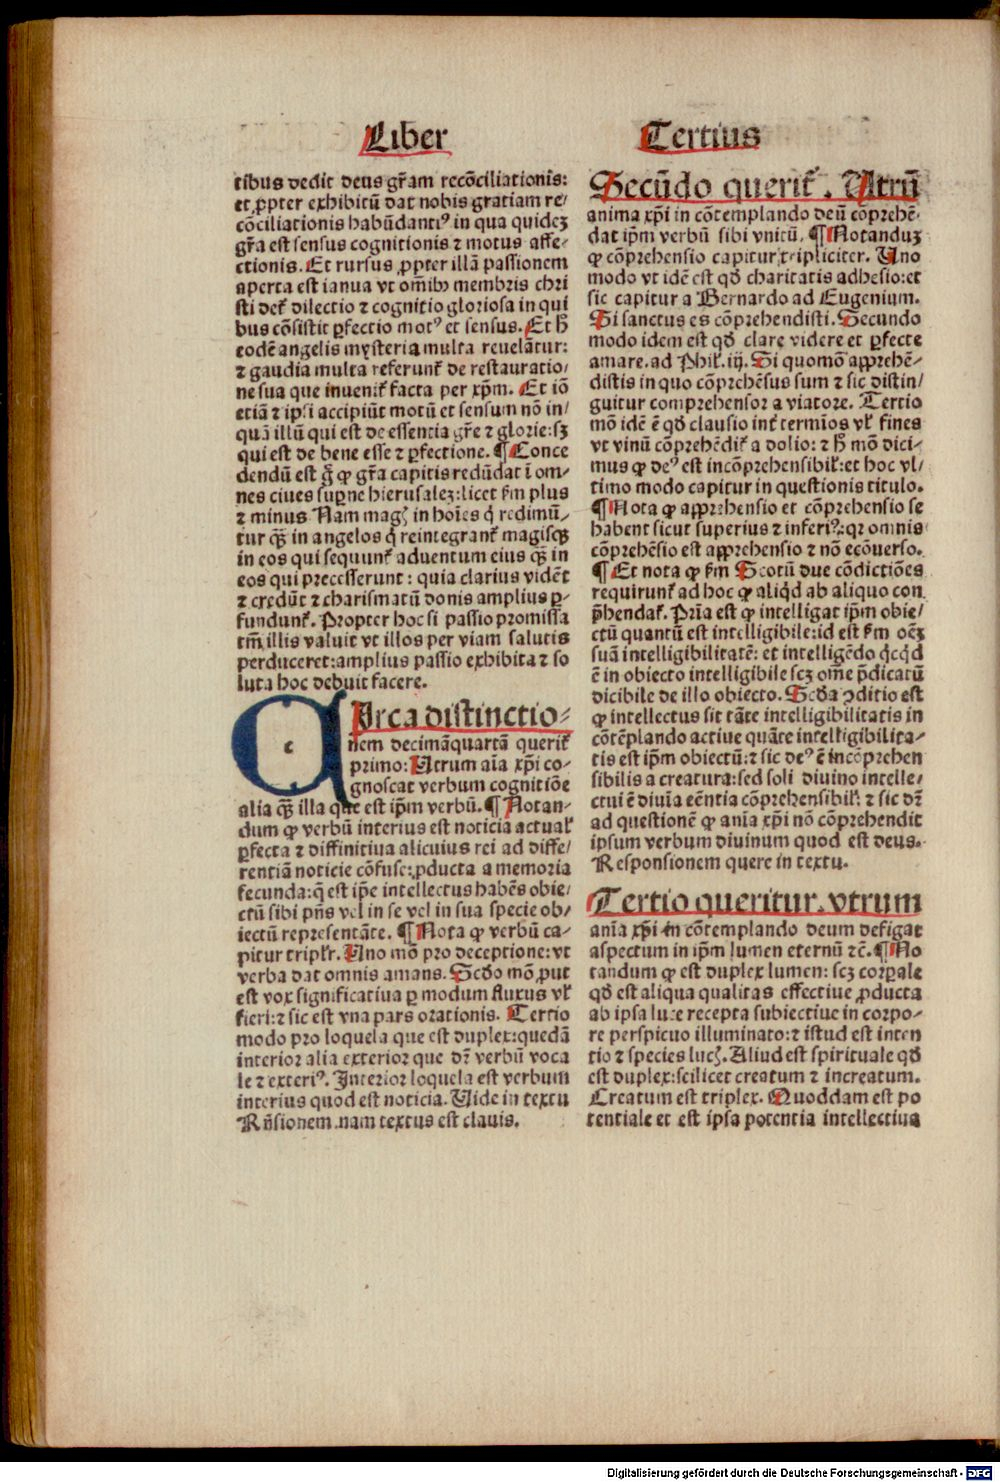 Liber
Tertius
tibus dedit deus gr̄am recōciliationis:
et ꝓpter exhibitū dat nobis gratiam re/
cōciliationis habūdantiꝰ in qua quideꝫ
gr̄a est sensus cognitionis ⁊ motus affe-
ctionis. Et rursus ꝓpter illā passionem
aperta est ianua vt om̄ibꝰ membris chri
sti det᷑ dilectio ⁊ cognitio gloriosa in qui
bus cōsistit ꝑfectio motꝰ et sensus. Et h̄
eodē angelis mysteria multa reuelātur:
⁊ gaudia multa referunt᷑ de restauratio/
ne sua que inuenit᷑ facta per xp̄m. Et iō
etiā ⁊ ipsi accipiūt motū et sensum nō in/
quā illū qui est de essentia gr̄e ⁊ glorie:sꝫ
qui est de bene esse ⁊ ꝑfectione. ¶ Conce
dendū est g̊ ꝙ gr̄a capitis redūdat ī om-
nes ciues suꝑne hierusaleꝫ:licet ẜm plus
⁊ minus. Nam magꝭ in hoīes q̇ redimū-
tur qꝫ̄ in angelos q̇ reintegrant᷑ magisqꝫ
in eos qui sequunt᷑ aduentum eius qꝫ̄ in
eos qui precesserunt: quia clarius vidēt
⁊ credūt ⁊ charismatū donis amplius ꝑ-
fundunt᷑. Propter hoc si passio promissa
tm̄ illis valuit vt illos per viam salutis
perduceret:amplius passio exhibita ⁊ so
luta hoc debuit facere.
CIrca distinctio-
nem decimāquartā querit᷑
primo: Utrum aīa xp̄i co-
gnoscat verbum cognitiōe
alia qꝫ̄ illa que est ip̄m verbū. ¶ Notan-
dum ꝙ verbū interius est noticia actual᷑
ꝑfecta ⁊ diffinitiua alicuius rei ad diffe/
rentiā noticie cōfuse:ꝓducta a memoria
fecunda:q̄ est ip̄e intellectus habēs obie/
ctū sibi pn̄s vel in se vel in sua specie ob/
iectū representāte. ¶ Nota ꝙ verbū ca-
pitur triplr̄. Uno mō pro deceptione: vt
verba dat omnis amans. Scd̄o mō ꝓut
est vox significatiua ꝑ modum fluxus vl᷑
fieri:⁊ sic est vna pars orationis. Tertio
modo pro loquela que est duplex:quedā
interior alia exterior que dr̄ verbū voca
le ⁊ exteriꝰ. Interior loquela est verbum
interius quod est noticia. Uide in textu
Rn̄sionem.nam textus est clauis.
Secūdo querit᷑. Utrū
anima xp̄i in cōtemplando deū cōprehē-
dat ip̄m verbū sibi vnitū. ¶ Notanduꝫ
ꝙ cōprehensio capitur tripliciter. Uno
modo vt idē est qd̄ charitatis adhesio:et
sic capitur a Bernardo ad Eugenium.
Si sanctus es cōprehendisti. Secundo
modo idem est qd̄ clare videre et ꝑfecte
amare. ad Phil᷑. iij. Si quomō apprehē-
distis in quo cōprehēsus sum ⁊ sic distin/
guitur comprehensor a viatore. Tertio
mō idē ē qd̄ clausio int᷑ termīos vl᷑ fines
vt vinū cōprehēdit᷑ a dolio: ⁊ h̄ mō dici-
mus ꝙ deꝰ est incōprehensibil᷑:et hoc vl/
timo modo capitur in questionis titulo.
¶ Nota ꝙ apprehensio et cōprehensio se
habent sicut superius ⁊ inferiꝰ:qr omnis
cōprehēsio est apprehensio ⁊ nō ecōuerso.
¶ Et nota ꝙ ẜm Scotū due cōdictiōes
requirunt᷑ ad hoc ꝙ aliqd̄ ab aliquo con
p̄hendat᷑. Prīa est ꝙ intelligat ip̄m obie/
ctū quantū est intelligibile:id est ẜm oēꝫ
suā intelligibilitatē: et intelligēdo qcqd̄
ē in obiecto intelligibile scꝫ om̄e p̄dicatū
dicibile de illo obiecto. Scd̄a ꝯditio est
ꝙ intellectus sit tāte intelligibilitatis in
cōtēplando actiue quāte intelligibilita-
tis est ip̄m obiectū:⁊ sic deꝰ ē incōprehen
sibilis a creatura:sed soli diuino intelle/
ctui ē diuīa eēntia cōprehensibil᷑: ⁊ sic dꝫ̄
ad questionē ꝙ anīa xp̄i nō cōprehendit
ipsum verbum diuinum quod est deus.
Responsionem quere in textu.
Tertio queritur.vtrum
anīa xp̄i in cōtemplando deum defigat
aspectum in ip̄m lumen eternū ⁊c̄. ¶ No
tandum ꝙ est duplex lumen: scꝫ corꝑale
qd̄ est aliqua qualitas effectiue ꝓducta
ab ipsa luce recepta subiectiue in corpo-
re perspicuo illuminato:⁊ istud est inten
tio ⁊ species lucꝭ. Aliud est spirituale qd̄
est duplex:scilicet creatum ⁊ increatum.
Creatum est triplex. Quoddam est po
tentiale et est ipsa potentia intellectiua
Digitalisierung gefördert durch die Deutsche Forschungsgemeinschaft - DFG